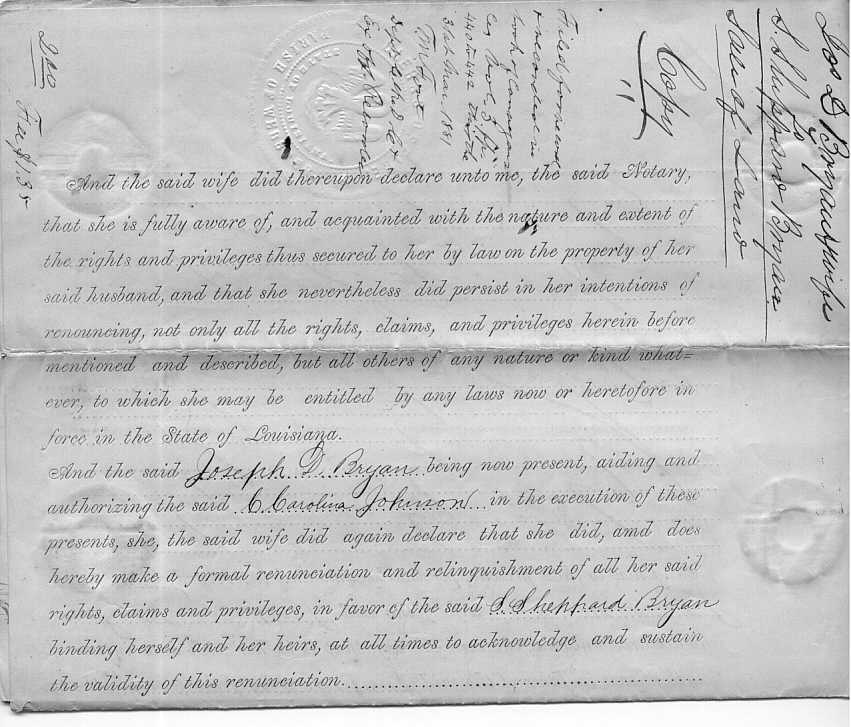 Jos D Bryan & wife
to
S. Sheppard Bryan
Sale of Land
Copy
Filed for record
& recorded in
book of Conveyan
ces
440 to 442
31st Mar. 1881
And the said wife did thereupon declare unto me, the said Notary,
that she is fully aware of, and acquainted with the nature and extent of
the rights and privileges thus secured to her by law on the property of her
said husband, and that she nevertheless did persist in her intentions of
renouncing, not only all the rights, claims, and privileges herein before
mentioned and described, but all others of any nature or kind what=
ever, to which she may be entitled by any laws now or heretofore in
force in the State of Louisiana.
And the said Joseph D. Bryan being now present, aiding and
authorizing the said C Carolina Johnson in the execution of these
presents, she, the said wife did again declare that she did, amd does
hereby make a formal renunciation and relinquishment of all her said
rights, claims and privileges, in favor of the said S. Sheppard Bryan
binding herself and her heirs, at all times to acknowledge and sustain
the validity of this renunciation.